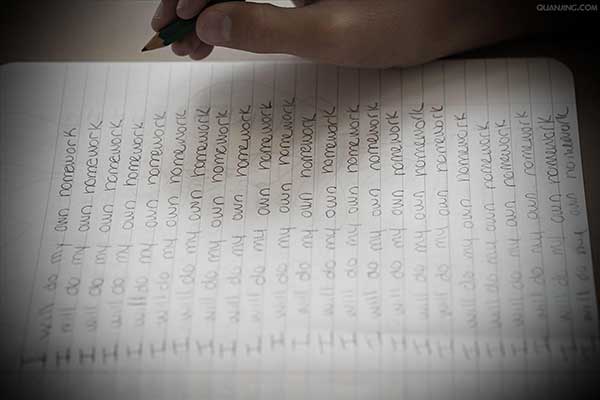 QUANJING.COM
I will do my own homework
I will do my own homework
I will do my own homework
I will do my own homework
I will do my own homework
I will do my own homework
I will do my own homework
I will do my own homework
I will do my own homework
I will do my own homework
I will do my own homework
I will do my own homework
I will do my own homework
I will do my own homework
I will do my own homework
I will do my own homework
I will do my own homework
I will do my own homework
I will do my own homework
I will do my own homework
I will do my own homework
I will do my own homework
I will do my own homework
I will do my own homework